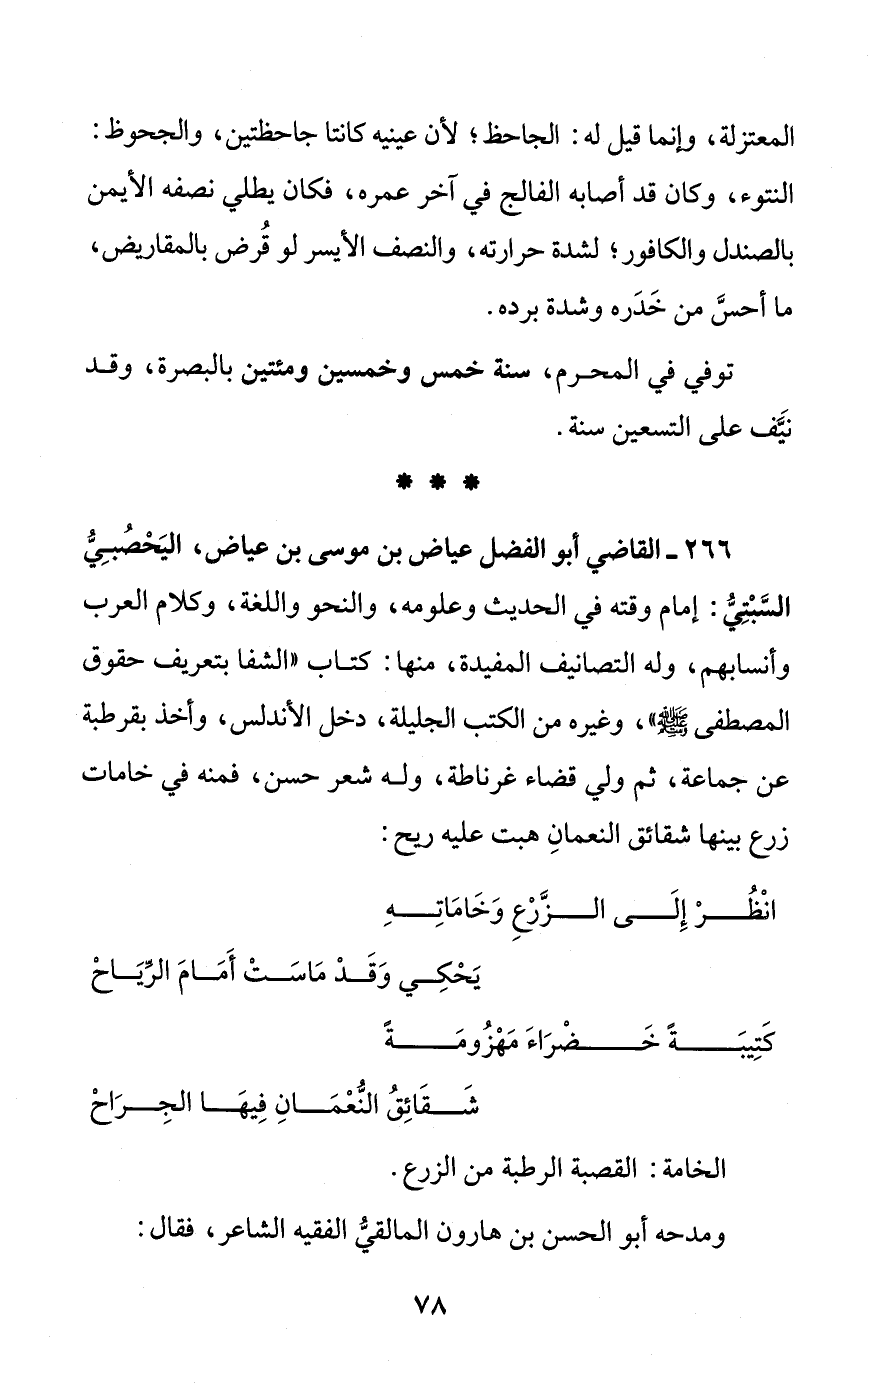 المعتزلة، وإنما قيل له: الجاحظ؛ لأن عينيه كانتا جاحظتين، والجحوظ:
النتوء، وكان قد أصابه الفالج في آخر عمره، فكان يطلي نصفه الأيمن
بالصندل والكافور؛ لشدة حرارته، والنصف الأيسر لو قُرض بالمقاريض،
ما أحسَّ من خَدَره وشدة برده.
توفي في المحرم، سنة خمس وخمسين ومئتين بالبصرة، وقد
نيَّف على التسعين سنة.
* * *
٢٦٦ ـ القاضي أبو الفضل عياض بن موسى بن عياض، اليَحْصُبيُّ
السَّبْتِيُّ: إمام وقته في الحديث وعلومه، والنحو واللغة، وكلام العرب
وأنسابهم، وله التصانيف المفيدة، منها: كتاب «الشفا بتعريف حقوق
المصطفى ﷺ»، وغيره من الكتب الجليلة، دخل الأندلس، وأخذ بقرطبة
عن جماعة، ثم ولي قضاء غرناطة، وله شعر حسن، فمنه في خامات
زرع بينها شقائق النعمانِ هبت عليه ريح:
انْظُرْ إِلَى الزَّرْعِ وَخَامَاتِهِ
يَحْكِي وَقَدْ مَاسَتْ أَمَامَ الرِّيَاحْ
كَتِيبَةً خَضْرَاءَ مَهْزُومَةً
شَقَائِقُ النُّعْمَانِ فِيهَا الجِرَاحْ
الخامة: القصبة الرطبة من الزرع.
ومدحه أبو الحسن بن هارون المالقيُّ الفقيه الشاعر، فقال:
٧٨